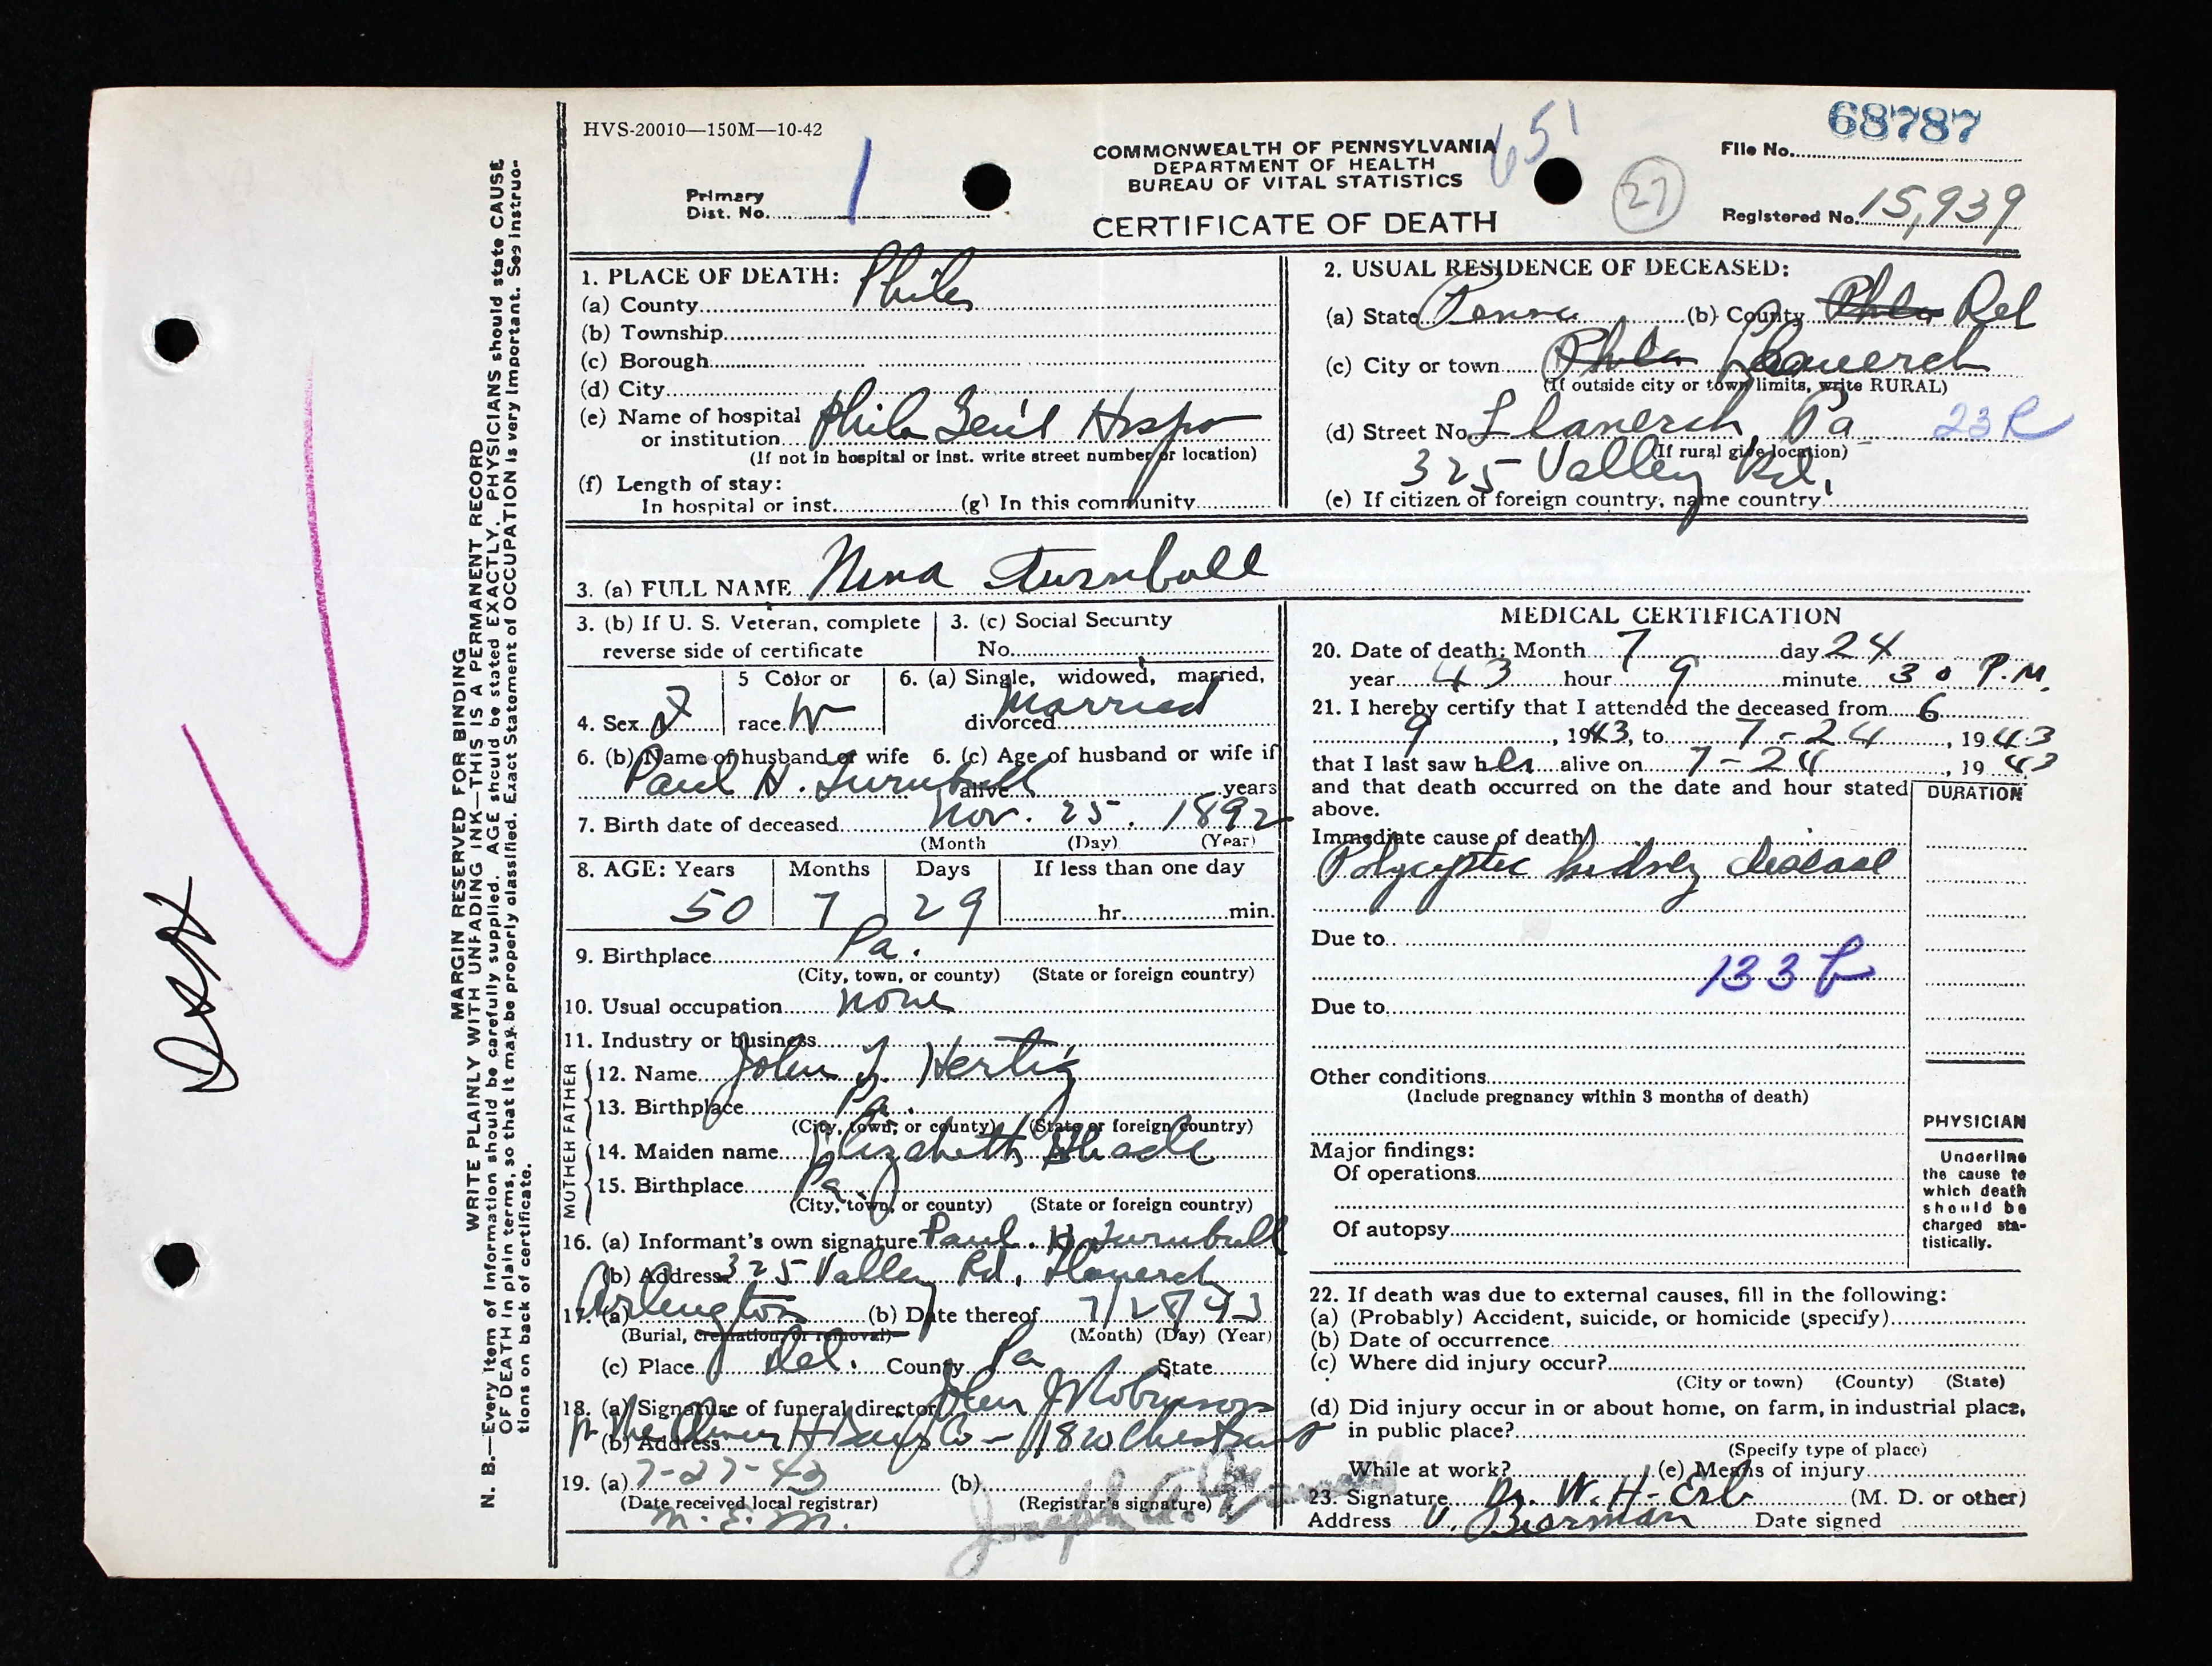 HVS-20010—150M—10-42
68787
COMMONWEALTH OF PENNSYLVANIA
DEPARTMENT OF HEALTH
BUREAU OF VITAL STATISTICS
CERTIFICATE OF DEATH
Primary Dist. No. 1
27
File No.
Registered No. 15,939
1. PLACE OF DEATH:
(a) County Phila
(b) Township
(c) Borough
(d) City
(e) Name of hospital
or institution Phila Gen'l Hosp
(If not in hospital or inst. write street number or location)
(f) Length of stay:
In hospital or inst. (g) In this community
2. USUAL RESIDENCE OF DECEASED:
(a) State Penna (b) County Phila Del
(c) City or town Phila Llanerch
(If outside city or town limits, write RURAL)
(d) Street No. Llanerch, Pa 23
(If rural give location)
325 Valley Rd.
(e) If citizen of foreign country, name country
3. (a) FULL NAME Nina Turnbull
3. (b) If U. S. Veteran, complete
reverse side of certificate
3. (c) Social Security
No.
4. Sex F
5 Color or
race W
6. (a) Single, widowed, married,
divorced Married
6. (b) Name of husband or wife
Paul H. Turnbull
6. (c) Age of husband or wife if
alive years
7. Birth date of deceased Nov. 25. 1892
(Month (Day) (Year)
8. AGE: Years Months Days If less than one day
50 7 29 hr. min.
9. Birthplace Pa.
(City, town, or county) (State or foreign country)
10. Usual occupation none
11. Industry or business
FATHER
12. Name John Hertig
13. Birthplace Pa.
(City, town, or county) (State or foreign country)
MOTHER
14. Maiden name Elizabeth
15. Birthplace Pa
(City, town, or county) (State or foreign country)
16. (a) Informant's own signature Paul. H. Turnbull
(b) Address 325 Valley Rd. Llanerch
17. (a) Arlington (b) Date thereof 7/28/43
(Burial, cremation, or removal) (Month) (Day) (Year)
(c) Place Del. County Pa State
18. (a) Signature of funeral director John J Robinson
(b) Address The Oliver H Bair Co - 1820 Chestnut
19. (a) 7-27-43 (b)
(Date received local registrar) (Registrar's signature)
M. E. M. Joseph A.
MEDICAL CERTIFICATION
20. Date of death: Month 7 day 24
year 43 hour 9 minute 30 P.M.
21. I hereby certify that I attended the deceased from 6
9, 1943, to 7-24, 1943
that I last saw her alive on 7-24, 1943
and that death occurred on the date and hour stated
above.
DURATION
Immediate cause of death
Polycystic kidney disease
Due to
133
Due to
Other conditions
(Include pregnancy within 3 months of death)
Major findings:
Of operations
Of autopsy
PHYSICIAN
Underline
the cause to
which death
should be
charged sta-
tistically.
22. If death was due to external causes, fill in the following:
(a) (Probably) Accident, suicide, or homicide (specify)
(b) Date of occurrence
(c) Where did injury occur?
(City or town) (County) (State)
(d) Did injury occur in or about home, on farm, in industrial place,
in public place?
(Specify type of place)
While at work? (e) Means of injury
23. Signature Dr. W. H. Erb (M. D. or other)
Address Date signed
MARGIN RESERVED FOR BINDING
WRITE PLAINLY WITH UNFADING INK—THIS IS A PERMANENT RECORD
N. B.—Every item of information should be carefully supplied. AGE should be stated EXACTLY. PHYSICIANS should state CAUSE
OF DEATH in plain terms, so that it may be properly classified. Exact Statement of OCCUPATION is very important. See instruc-
tions on back of certificate.